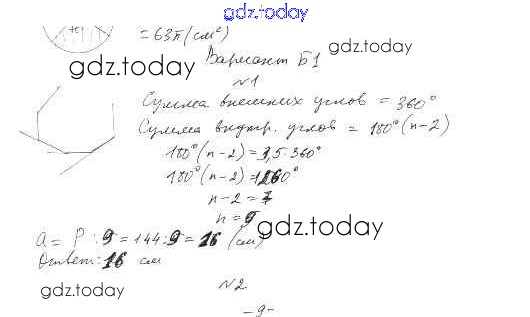 gdz.today
= 63π (см²)
gdz.today
gdz.today
Вариант Б1
№1
Сумма внешних углов = 360°
Сумма внутр. углов = 180°(n-2)
180°(n-2) = 3,5·360°
180°(n-2) = 1260°
n-2 = 7
n = 9
gdz.today
a = P : 9 = 144 : 9 = 16 (см)
Ответ: 16 см
gdz.today
№2
-9-